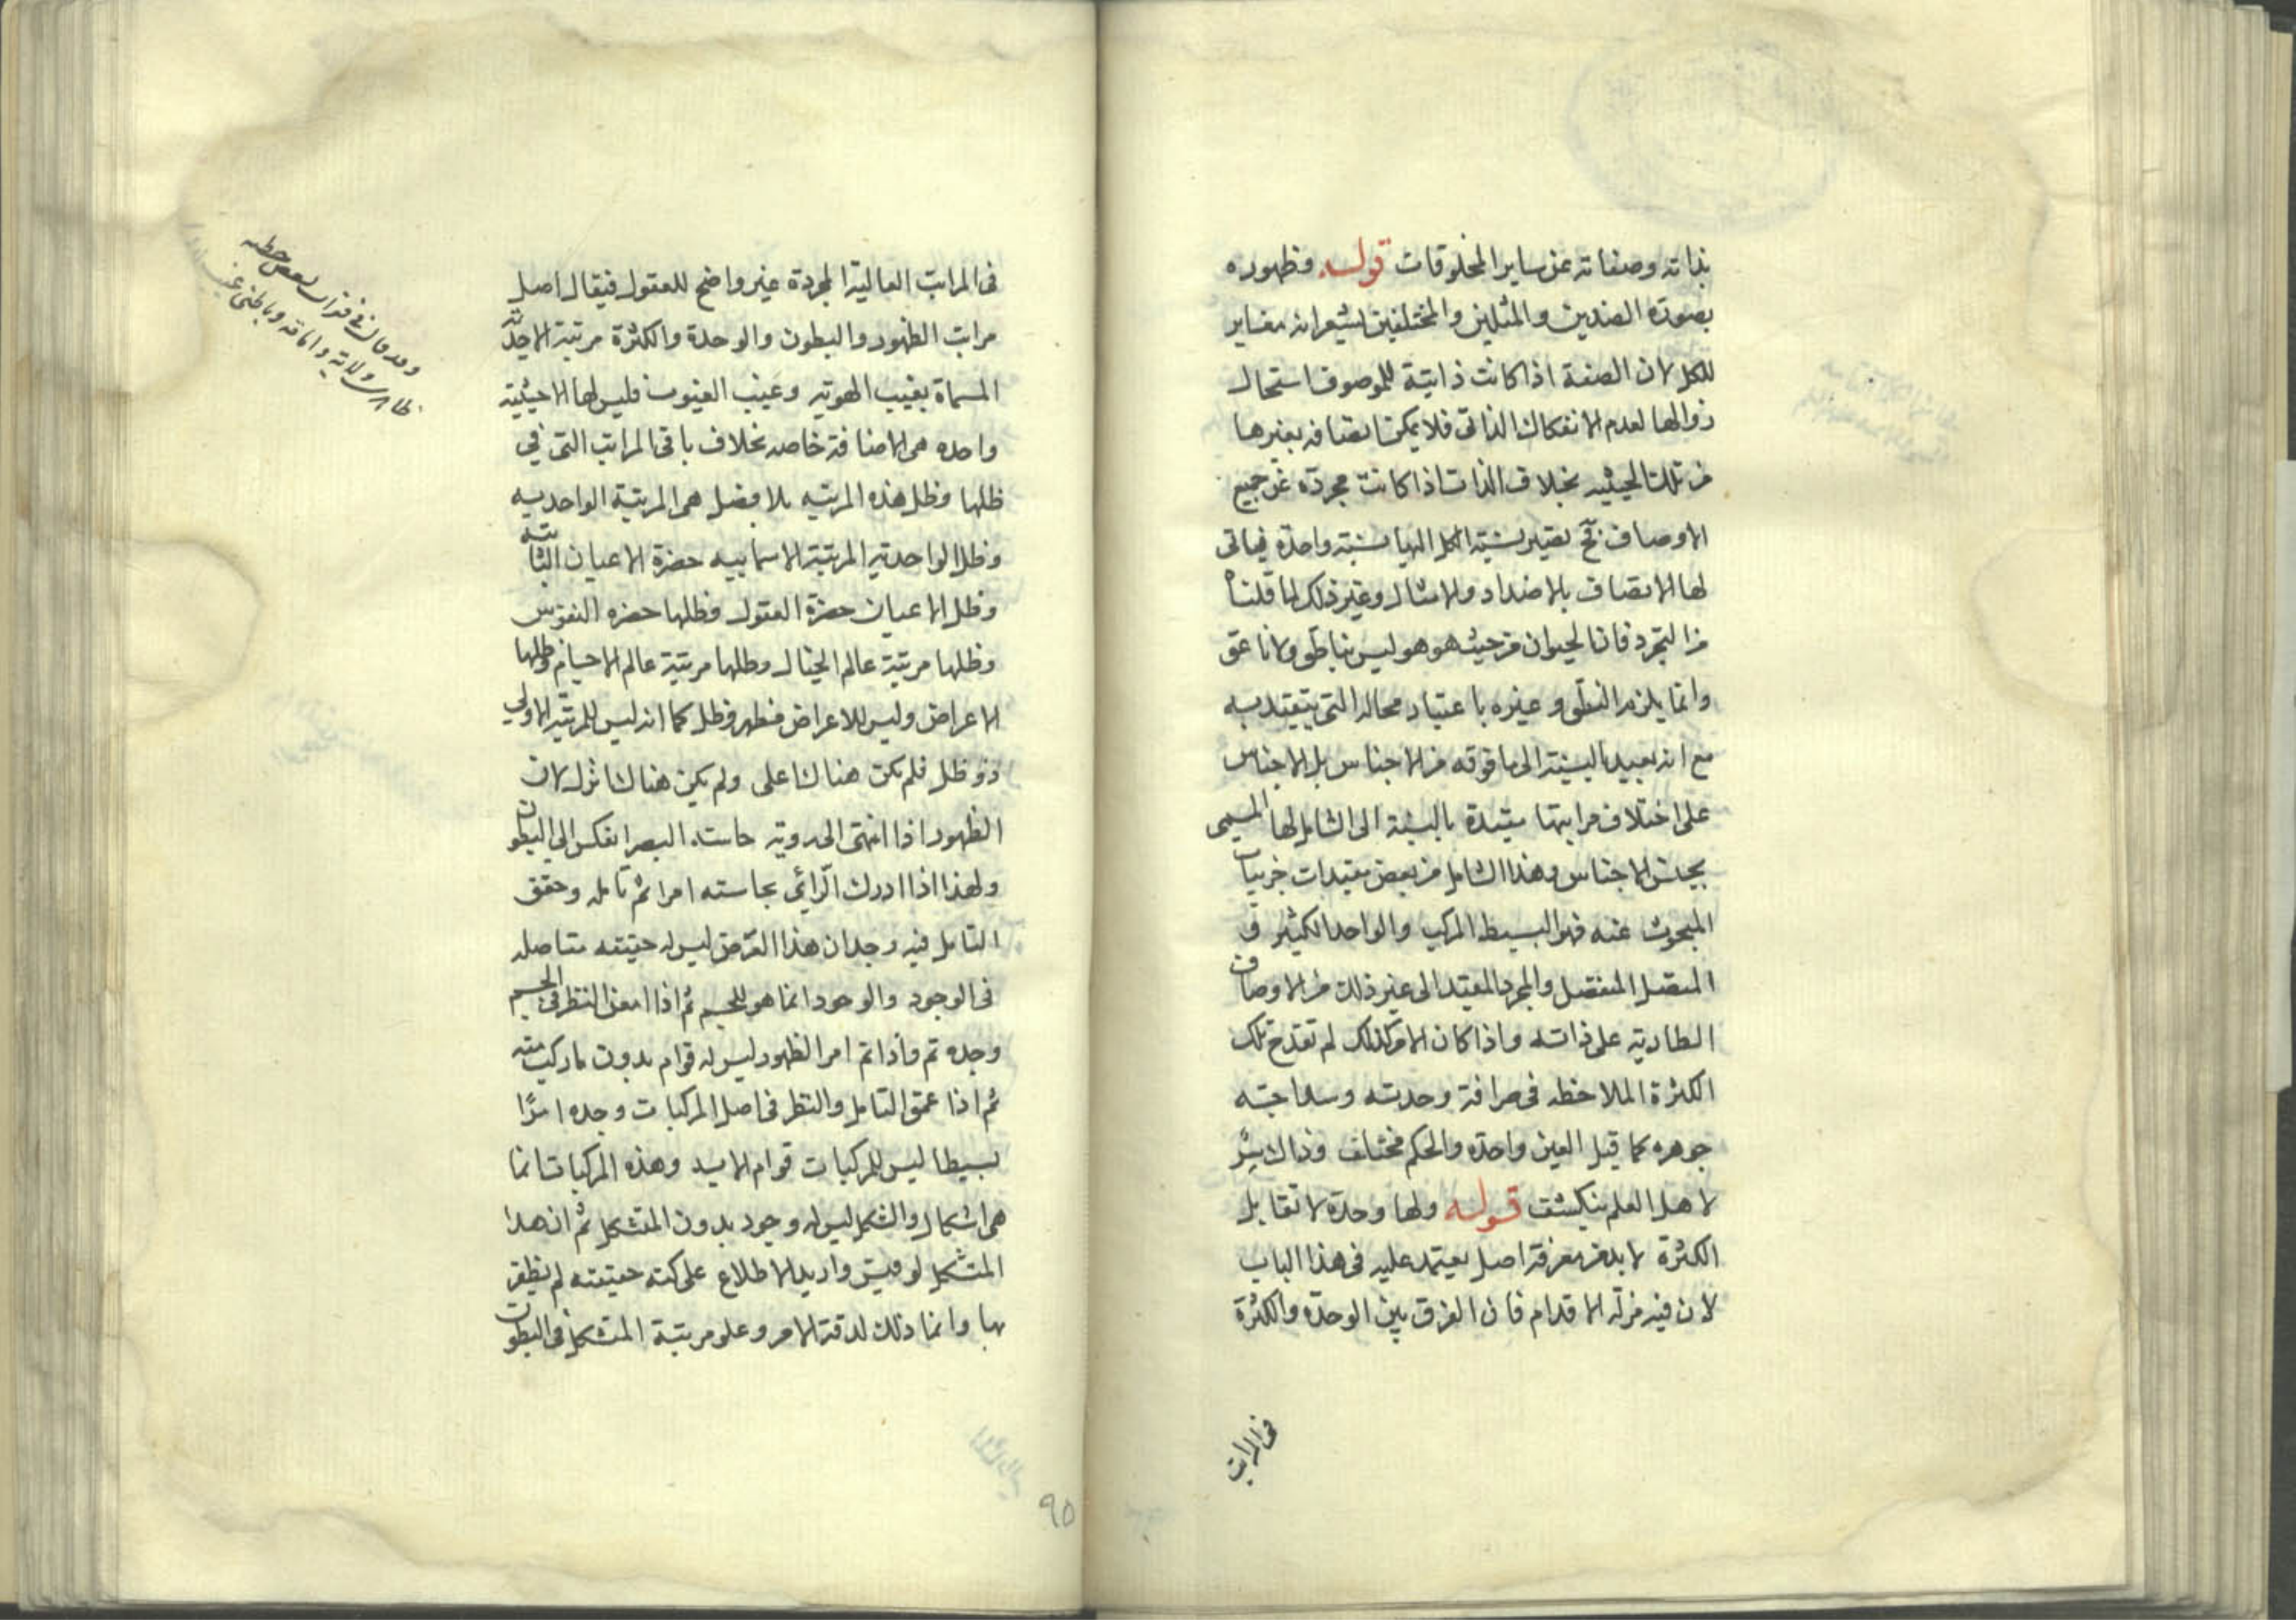 بذاته وصفاته عن ساير المخلوقات قوله وظهوره
بصورة الضدين والمثلين والمختلفين يشعر انه مغاير
للكل لان الصفة اذا كانت ذاتية للموصوف استحال
زوالها لعدم الانفكاك الذاتى فلا يمكن اتصافه بغيرها
من تلك الحيثيه بخلاف الذات اذا كانت مجردة عن جميع
الاوصاف فح تصير نسبة الكل اليها نسبة واحدة فياتى
لها الاتصاف بالاضداد والامثال وغير ذلك لما قلناه
من التجرد فان الحيوان من حيث هو هو ليس بناطق ولا ناعق
وانما يلزمه النطق وغيره باعتبار محاله التى يتقيد به
مع انه بعيد بالنسبة الى ما فوقه من الاجناس بل الاجناس
على اختلاف مراتبها مقيدة بالنسبة الى الشامل لها المسمى
بجنس الاجناس وهذا الشامل من بعض مقيدات جزييات
المبحوث عنه فهو البسيط المركب والواحد الكثير و
المتصل المنفصل والمجرد المقيد الى غير ذلك من الاوصاف
الطارية على ذاته واذا كان الامر كذلك لم تقدح تلك
الكثرة الملاحظه فى صرافة وحدته وسذاجته
جوهره كما قيل العين واحدة والحكم مختلف وذاك سر
لاهل العلم ينكشف قوله ولها وحدة لا تقابل
الكثرة لا بد من معرفة اصل يعتمد عليه فى هذا الباب
لان فيه مزلة الاقدام فان الفرق بين الوحدة والكثرة
فى المراتب
فى المراتب العالية المجردة غير واضح للعقول فيقال اصل
مراتب الظهور والبطون والوحدة والكثرة مرتبة الاحدية
المسماة بغيب الهوية وغيب الغيوب فليس لها الا حيثية
واحده هى الاضافة خاصه بخلاف باقى المراتب التى فى
ظلها وظل هذه المرتبه بلا فصل هى المرتبة الواحديه
وظل الواحدية المرتبة الاسماييه حضرة الاعيان الثابتة
وظل الاعيان حضرة العقول وظلها حضره النفوس
وظلها مرتبة عالم الخيال وظلها مرتبة عالم الاجسام وظلها
الاعراض وليس للاعراض مظهر وظل كما انه ليس للمرتبة الاولى
ذو ظل فلم يكن هناك اعلى ولم يكن هناك انزل لان
الظهور اذا انتهى الى روية حاسة البصر انعكس الى البطون
ولهذا اذا ادرك الرائي بحاسته امرا ثم تامله وحقق
التامل فيه وجد ان هذا العرض ليس له حقيقه متاصله
فى الوجود والوجود انما هو للجسم ثم اذا امعن النظر فى الجسم
وجده تم واذا تم امر الظهور ليس له قوام بدون ما ركب منه
ثم اذا عمق التامل والنظر فى اصل المركبات وجده امرًا
بسيطا ليس للمركبات قوام الا به وهذه المركبات انما
هى اشكال والشكل ليس له وجود بدون المتشكل ثم ان هذا
المتشكل لو فتش واريد الاطلاع على كنه حقيقته لم يظفر
بها وانما ذلك لدقة الامر وعلو مرتبة المتشكل فى البطون
وقد قال فى فقرات بعض خطبه
ظاهرى ولاية وامامة وباطنى غيب
٩٥